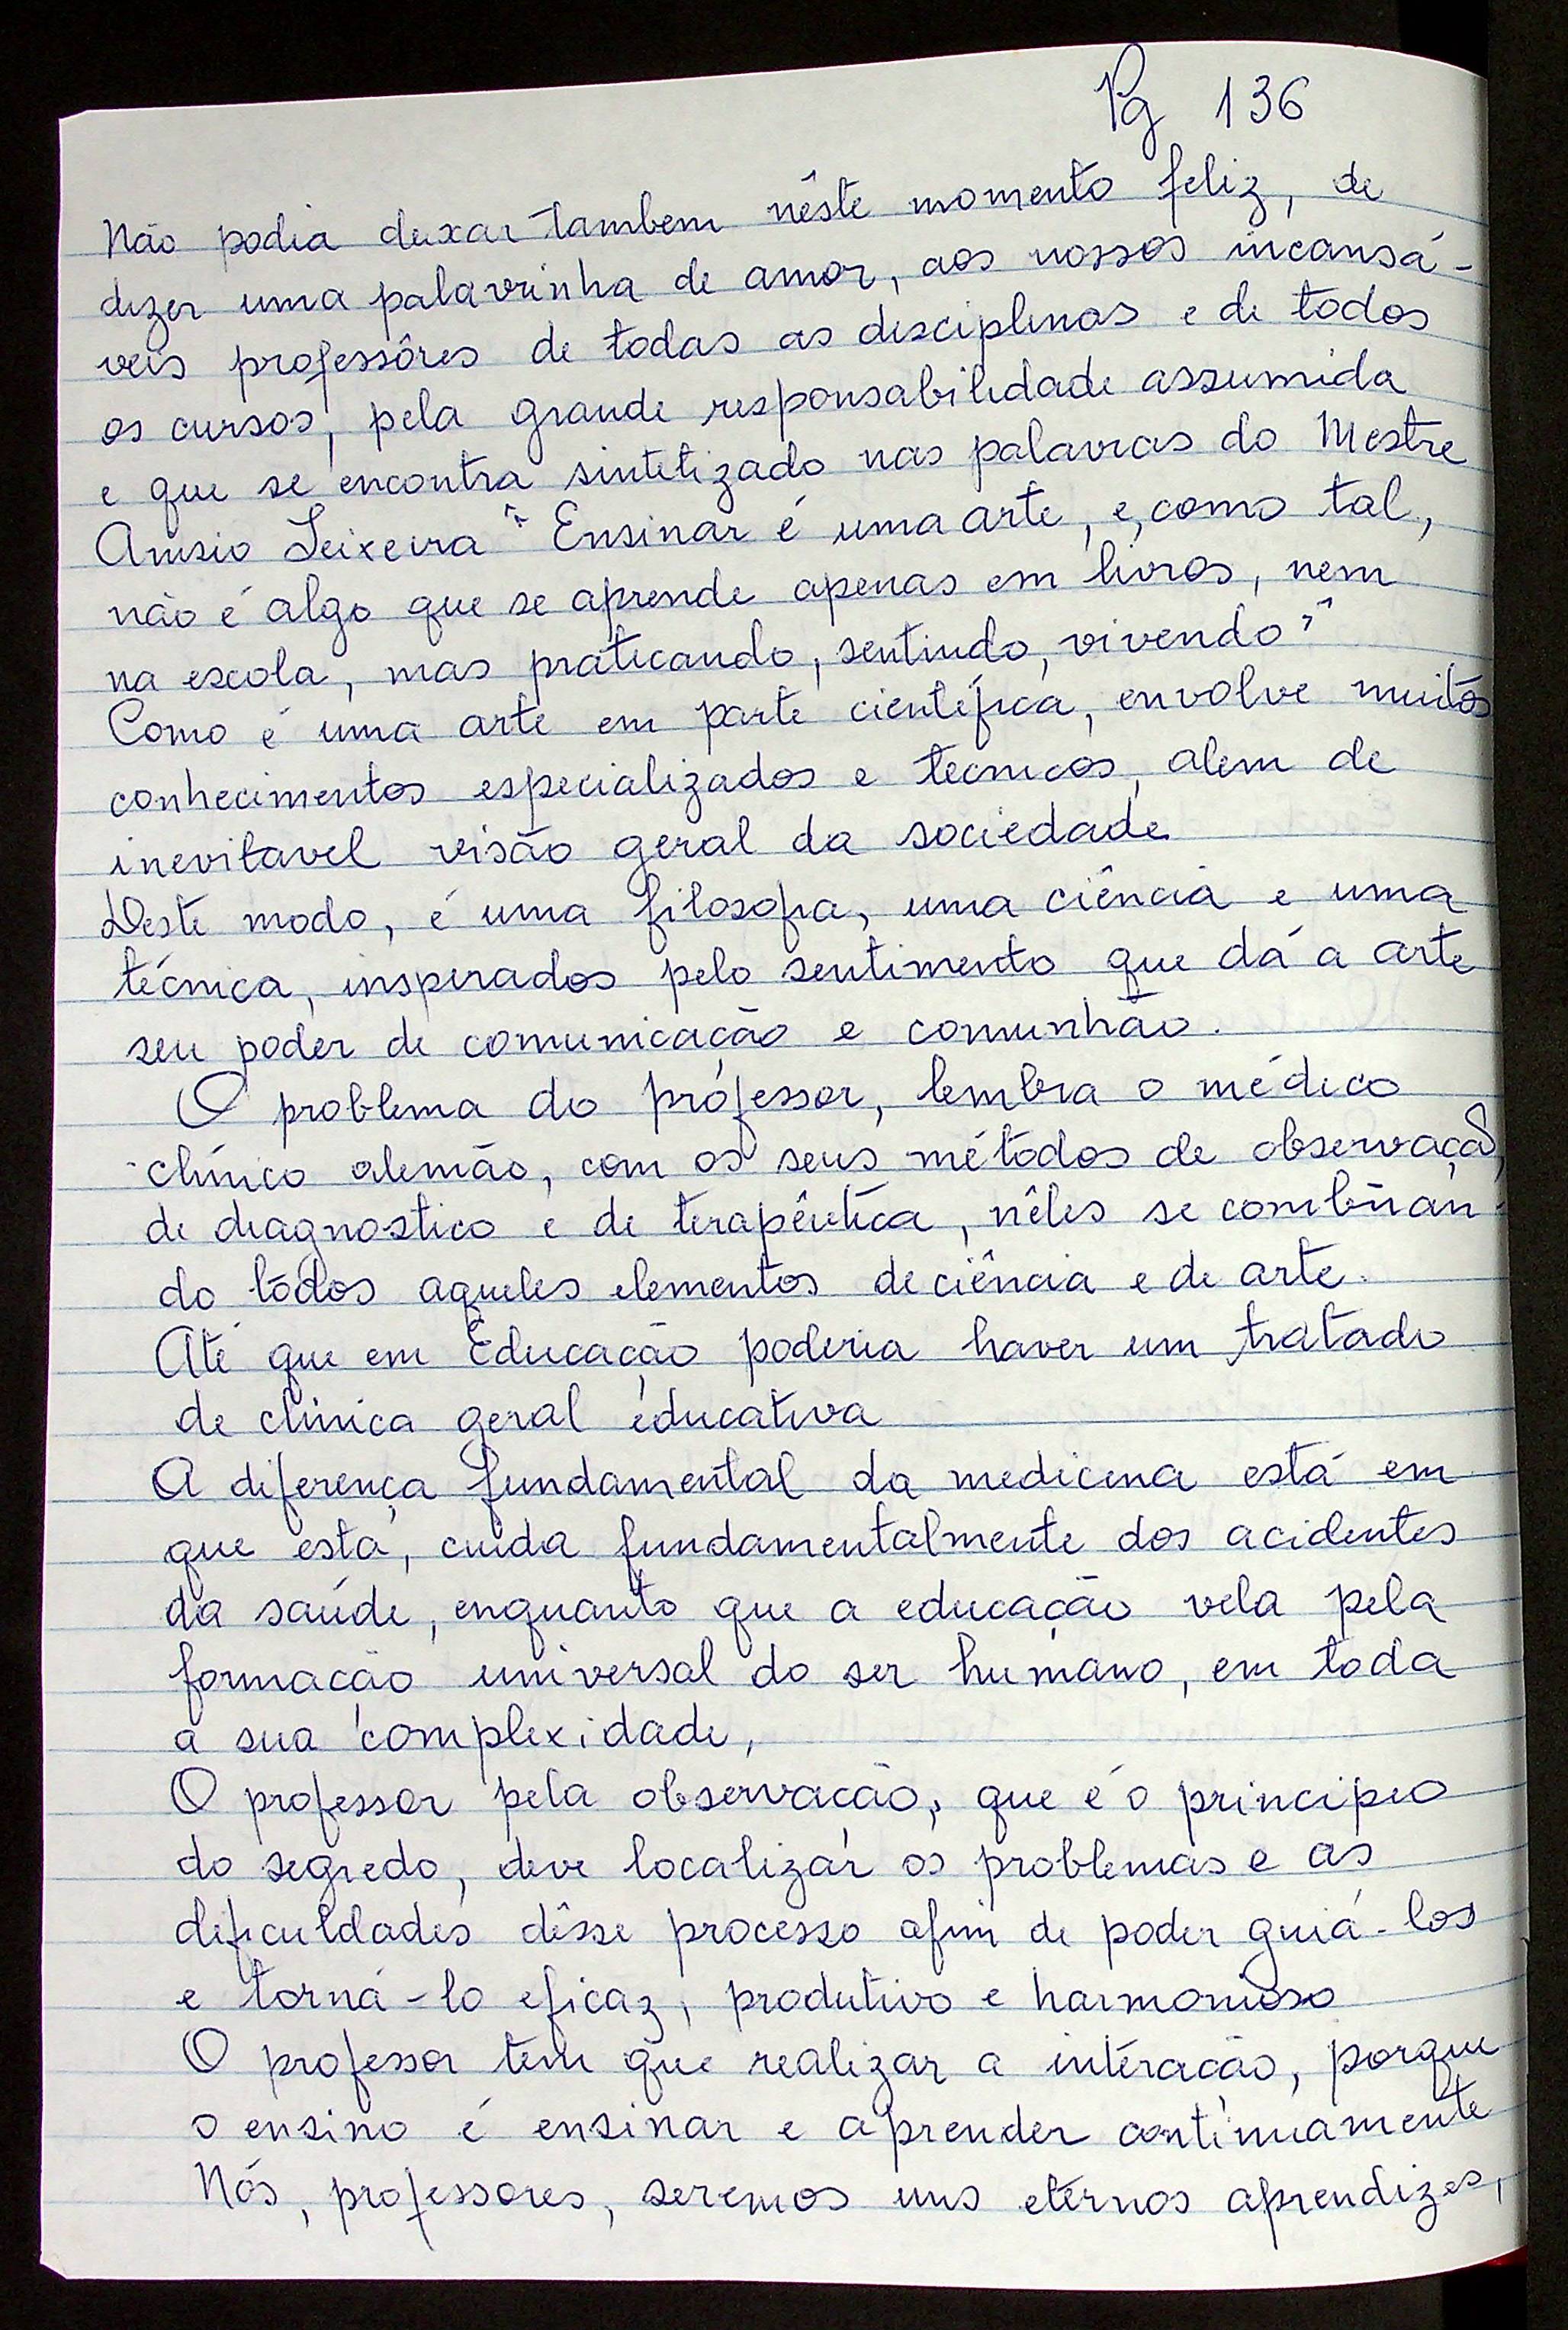 Pg 136
Não podia deixar tambem nêste momento feliz, de
dizer uma palavrinha de amor, aos nossos incansá-
veis professôres de todas as disciplinas e de todos
os cursos, pela grande responsabilidade assumida
e que se encontra sintetizado nas palavras do Mestre
Anisio Teixeira "Ensinar é uma arte, e, como tal,
não é algo que se aprende apenas em livros, nem
na escola, mas praticando, sentindo, vivendo"
Como é uma arte em parte científica, envolve muitos
conhecimentos especializados e tecnicos, alem de
inevitavel visão geral da sociedade
Deste modo, é uma filosofia, uma ciência e uma
técnica, inspirados pelo sentimento que dá a arte
seu poder de comunicação e comunhão.
O problema do professor, lembra o médico
clínico alemão, com os seus métodos de observação,
de diagnostico e de terapêutica, nêles se combinan-
do todos aqueles elementos de ciência e de arte.
Até que em Educação poderia haver um tratado
de clínica geral educativa
A diferença fundamental da medicina está em
que está, cuida fundamentalmente dos acidentes
da saúde, enquanto que a educação vela pela
formação universal do ser humano, em toda
a sua complexidade,
O professor pela observação, que é o principio
do segredo, deve localizar os problemas e as
dificuldades dêsse processo afim de poder guiá-los
e torná-lo eficaz, produtivo e harmonioso
O professor tem que realizar a interação, porque
o ensino é ensinar e aprender continuamente
Nós, professores, seremos uns eternos aprendizes,